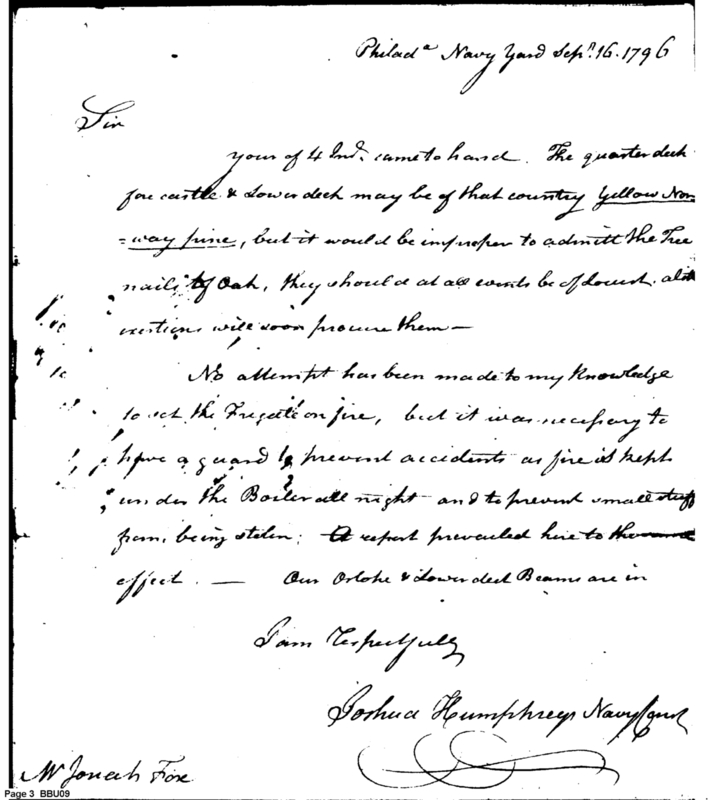 Philad.ª Navy Yard Sepr. 16. 1796
Sir
your of 4 Ind. came to hand. The quarter deck
fore castle & Lower deck may be of that country Yellow Nor
=way pine, but it would be improper to admitt the Tree
nails of Oak, they should at all events be of Locust.
exertions will soon procure them —
No attempt has been made to my Knowledge
to set the Frigate on fire, but it was necessary to
have a guard to prevent accidents as fire is kept
under the Boiler all night and to prevent small stuff
from being stolen; A report prevailed here to
effect. — Our Orlope & Lower deck Beams are in
I am respectfully
Joshua Humphreys Navy
Mr. Josiah Fox
Page 3 BBU09